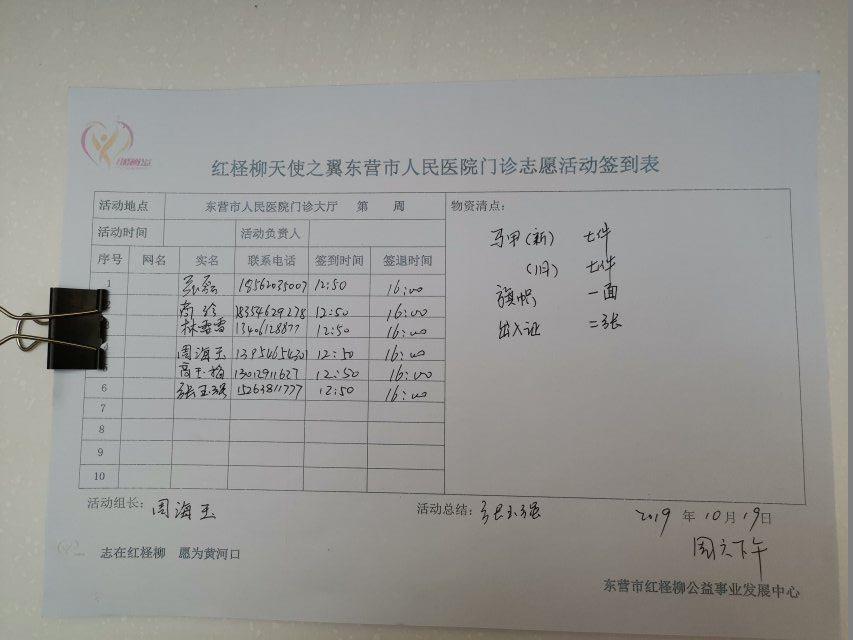 红柽柳天使之翼东营市人民医院门诊志愿活动签到表
活动地点 东营市人民医院门诊大厅 第 周 物资清点：
活动时间 活动负责人 马甲（新） 七件
序号 网名 实名 联系电话 签到时间 签退时间 （旧） 七件
1 12:50 16:00 旗帜 一面
12:50 16:00 出入证 二张
林雪雪 13406128877 12:50 16:00
周海玉 12:50 16:00
5 高玉梅 13012911627 12:50 16:00
6 张玉强 15263811777 12:50 16:00
7
8
9
10
活动组长：周海玉 活动总结：张玉强 2019 年 10 月 19 日
周六下午
志在红柽柳 愿为黄河口
东营市红柽柳公益事业发展中心